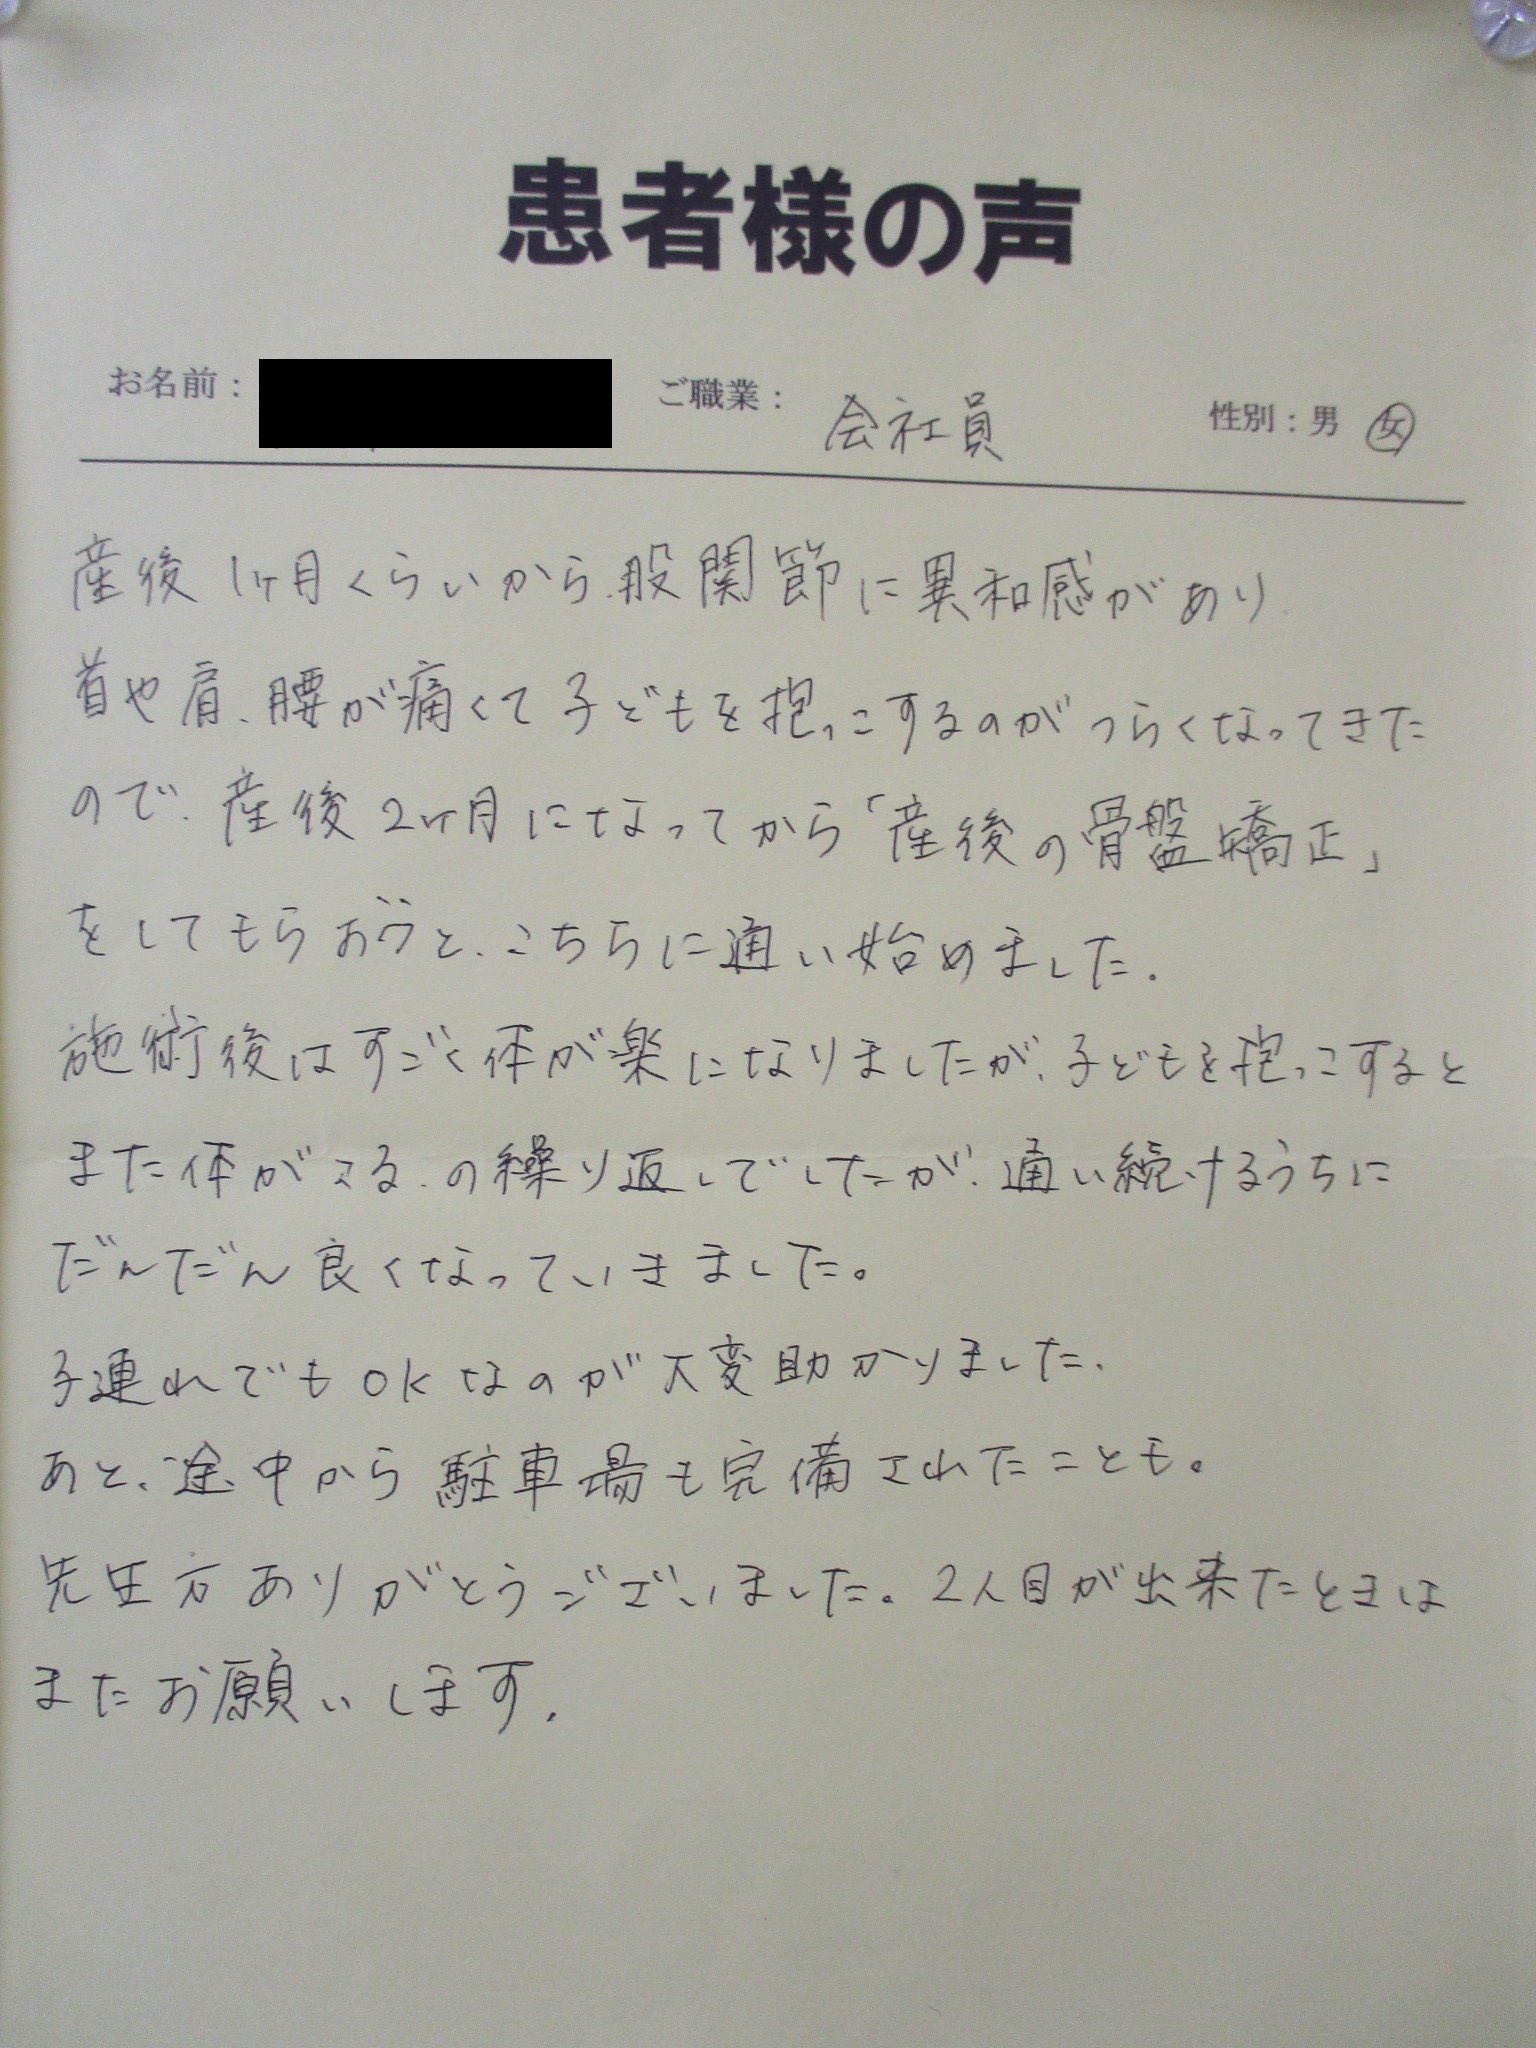 患者様の声
お名前： ご職業： 会社員 性別：男 女
産後1ヶ月くらいから、股関節に異和感があり、
首や肩、腰が痛くて子どもを抱っこするのがつらくなってきた
ので、産後2ヶ月になってから「産後の骨盤矯正」
をしてもらおうと、こちらに通い始めました。
施術後はすごく体が楽になりましたが、子どもを抱っこすると
また体がこる、の繰り返しでしたが、通い続けるうちに
だんだん良くなっていきました。
子連れでもOKなのが大変助かりました、
あと、途中から駐車場も完備されたことも。
先生方ありがとうございました。2人目が出来たときは
またお願いします。